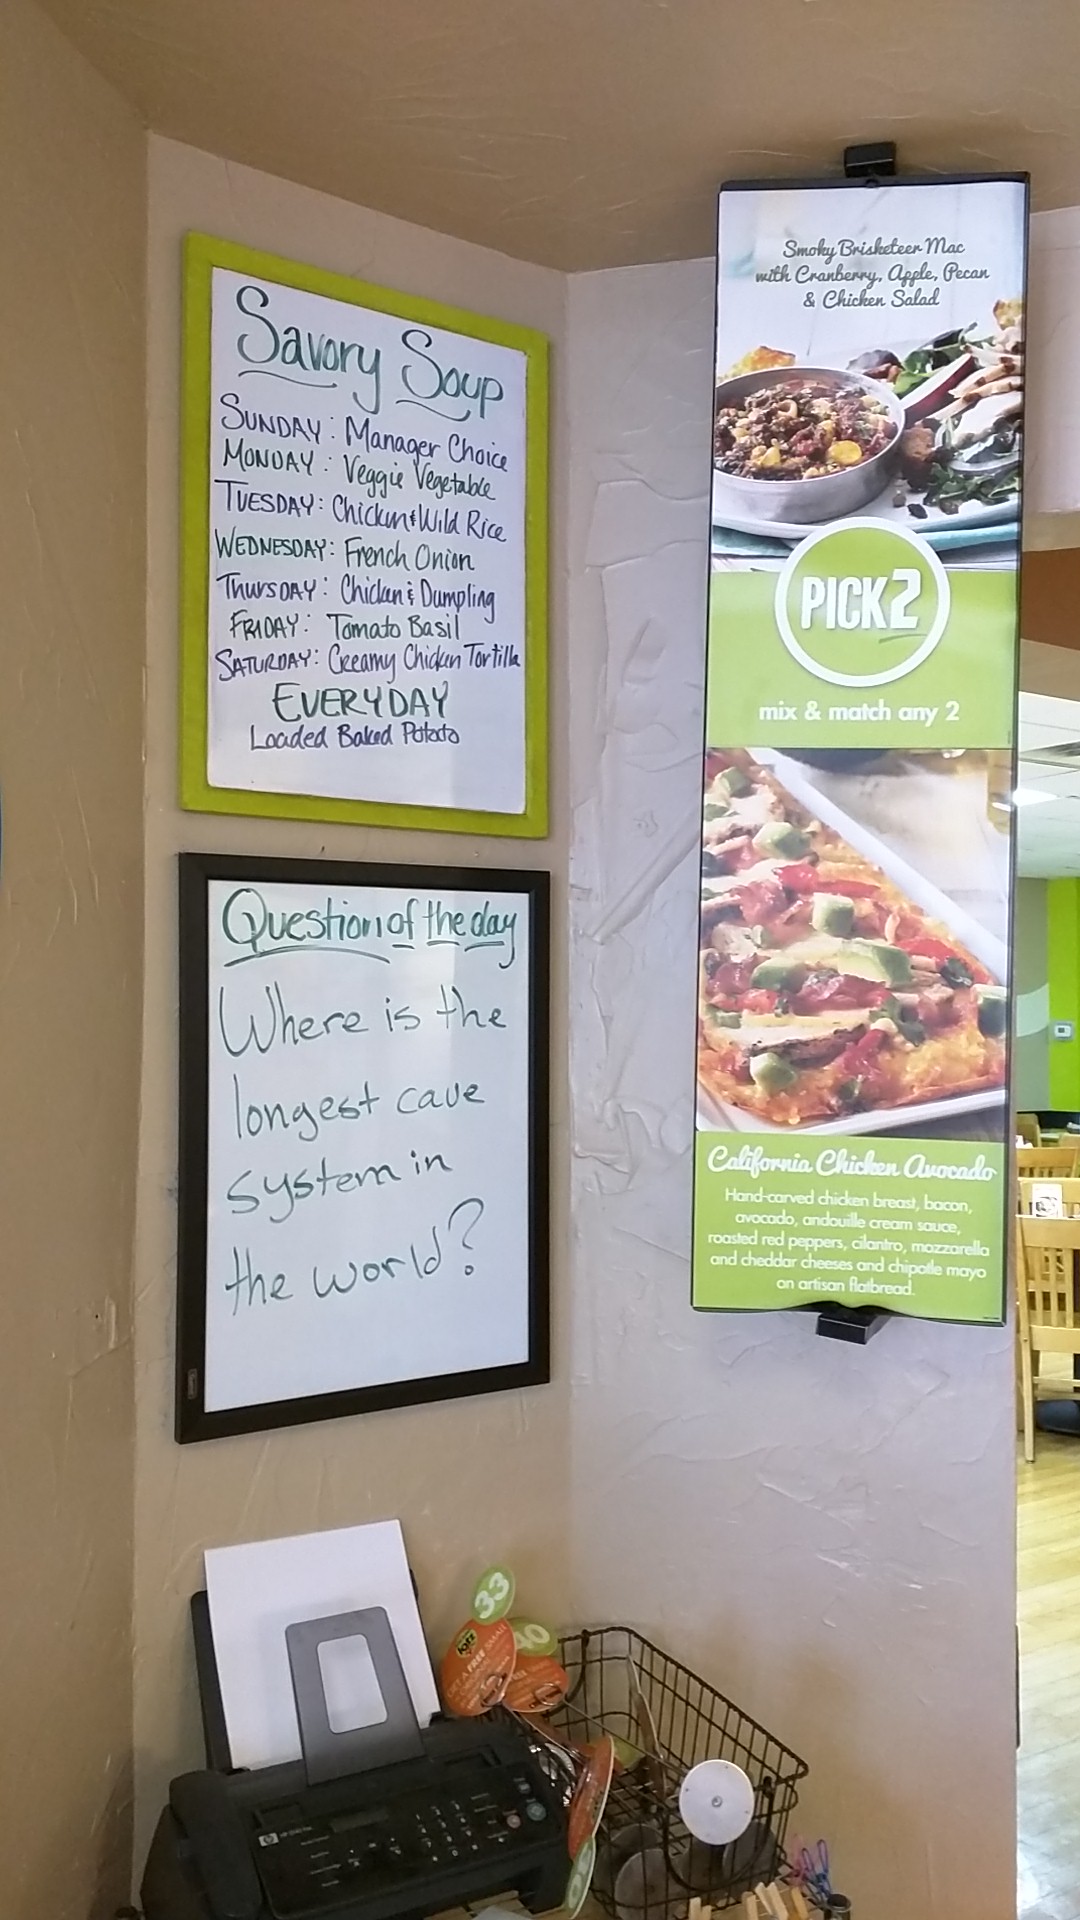 Savory Soup
SUNDAY: Manager Choice
MONDAY: Veggie Vegetable
TUESDAY: Chicken & Wild Rice
WEDNESDAY: French Onion
THURSDAY: Chicken & Dumpling
FRIDAY: Tomato Basil
SATURDAY: Creamy Chicken Tortilla
EVERYDAY
Loaded Baked Potato
Question of the day
Where is the
longest cave
system in
the world?
Smoky Brisketeer Mac
with Cranberry, Apple, Pecan
& Chicken Salad
PICK 2
mix & match any 2
California Chicken Avocado
Hand-carved chicken breast, bacon,
avocado, andouille cream sauce,
roasted red peppers, cilantro, mozzarella
and cheddar cheeses and chipotle mayo
on artisan flatbread.
33
40
GET A FREE SMALL
hp